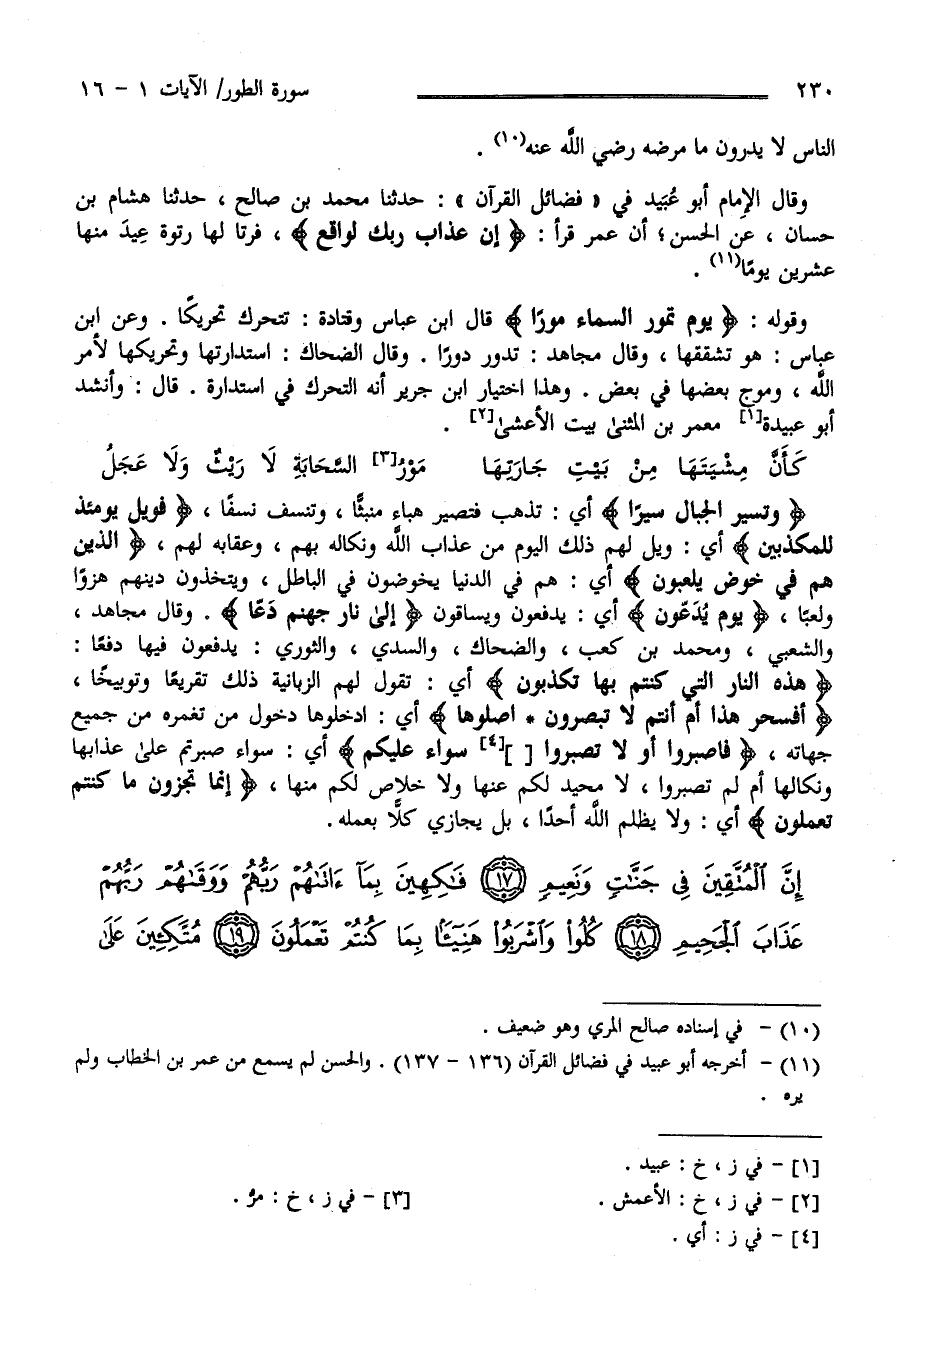 ٢٣٠ سورة الطور/ الآيات ١ - ١٦
الناس لا يدرون ما مرضه رضي اللَّه عنه(١٠) .
وقال الإمام أبو عُبَيد في « فضائل القرآن » : حدثنا محمد بن صالح ، حدثنا هشام بن
حسان ، عن الحسن؛ أن عمر قرأ : ﴿ إن عذاب ربك لواقع ﴾ ، فرتا لها رتوة عِيدَ منها
عشرين يومًا(١١) .
وقوله : ﴿ يوم تمور السماء مورًا ﴾ قال ابن عباس وقتادة : تتحرك تحريكًا . وعن ابن
عباس : هو تشققها ، وقال مجاهد : تدور دورًا . وقال الضحاك : استدارتها وتحريكها لأمر
اللَّه ، وموج بعضها في بعض . وهذا اختيار ابن جرير أنه التحرك في استدارة . قال : وأنشد
أبو عبيدة[١] معمر بن المثنىٰ بيت الأعشىٰ[٢] .
كَأَنَّ مِشْيَتَهَا مِنْ بَيْتِ جَارَتِهَا مَوْرُ[٣] السَّحَابَةِ لَا رَيْثٌ وَلَا عَجَلُ
﴿ وتسير الجبال سيرًا ﴾ أي : تذهب فتصير هباء منبثًّا ، وتنسف نسفًا ، ﴿ فويل يومئذ
للمكذبين ﴾ أي : ويل لهم ذلك اليوم من عذاب اللَّه ونكاله بهم ، وعقابه لهم ، ﴿ الذين
هم في خوض يلعبون ﴾ أي : هم في الدنيا يخوضون في الباطل ، ويتخذون دينهم هزوًا
ولعبًا ، ﴿ يوم يُدَعّون ﴾ أي : يدفعون ويساقون ﴿ إلىٰ نار جهنم دَعًّا ﴾ . وقال مجاهد ،
والشعبي ، ومحمد بن كعب ، والضحاك ، والسدي ، والثوري : يدفعون فيها دفعًا :
﴿ هذه النار التي كنتم بها تكذبون ﴾ أي : تقول لهم الزبانية ذلك تقريعًا وتوبيخًا ،
﴿ أفسحر هذا أم أنتم لا تبصرون * اصلوها ﴾ أي : ادخلوها دخول من تغمره من جميع
جهاته ، ﴿ فاصبروا أو لا تصبروا [ ][٤] سواء عليكم ﴾ أي : سواء صبرتم علىٰ عذابها
ونكالها أم لم تصبروا ، لا محيد لكم عنها ولا خلاص لكم منها ، ﴿ إنما تجزون ما كنتم
تعملون ﴾ أي : ولا يظلم اللَّه أحدًا ، بل يجازي كلًّا بعمله.
إِنَّ ٱلْمُتَّقِينَ فِى جَنَّٰتٍ وَنَعِيمٍ ١٧ فَٰكِهِينَ بِمَآ ءَاتَىٰهُمْ رَبُّهُمْ وَوَقَىٰهُمْ رَبُّهُمْ
عَذَابَ ٱلْجَحِيمِ ١٨ كُلُوا۟ وَٱشْرَبُوا۟ هَنِيٓـًٔۢا بِمَا كُنتُمْ تَعْمَلُونَ ١٩ مُتَّكِـِٔينَ عَلَىٰ
(١٠) - في إسناده صالح المري وهو ضعيف .
(١١) - أخرجه أبو عبيد في فضائل القرآن (١٣٦ - ١٣٧) . والحسن لم يسمع من عمر بن الخطاب ولم
يره .
[١] - في ز ، خ : عبيد .
[٢] - في ز ، خ : الأعمش . [٣] - في ز ، خ : مرُّ .
[٤] - في ز : أي .